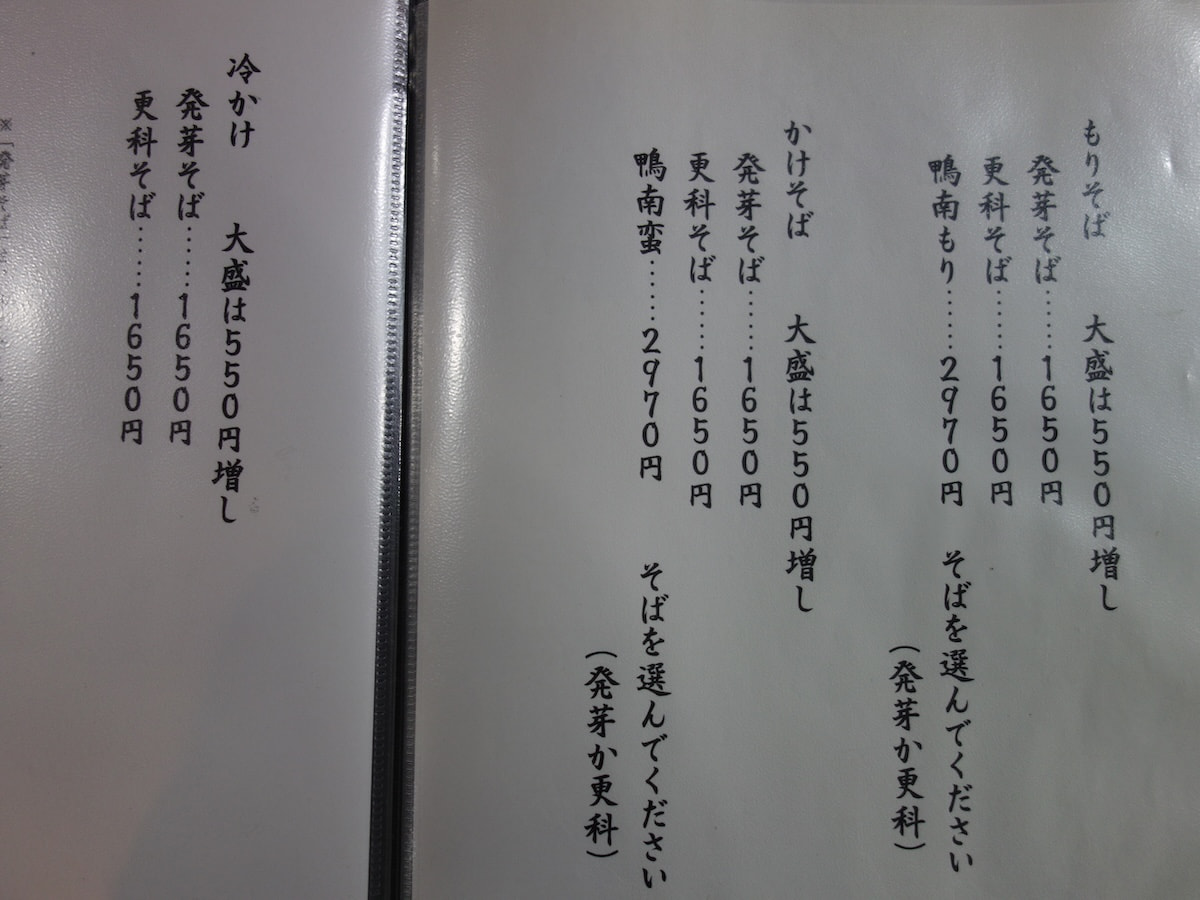 もりそば　大盛は550円増し
発芽そば………1650円
更科そば………1650円
鴨南もり………2970円　そばを選んでください
(発芽か更科)
かけそば　大盛は550円増し
発芽そば………1650円
更科そば………1650円
鴨南蛮………2970円　そばを選んでください
(発芽か更科)
冷かけ　大盛は550円増し
発芽そば………1650円
更科そば………1650円
※「発芽そば